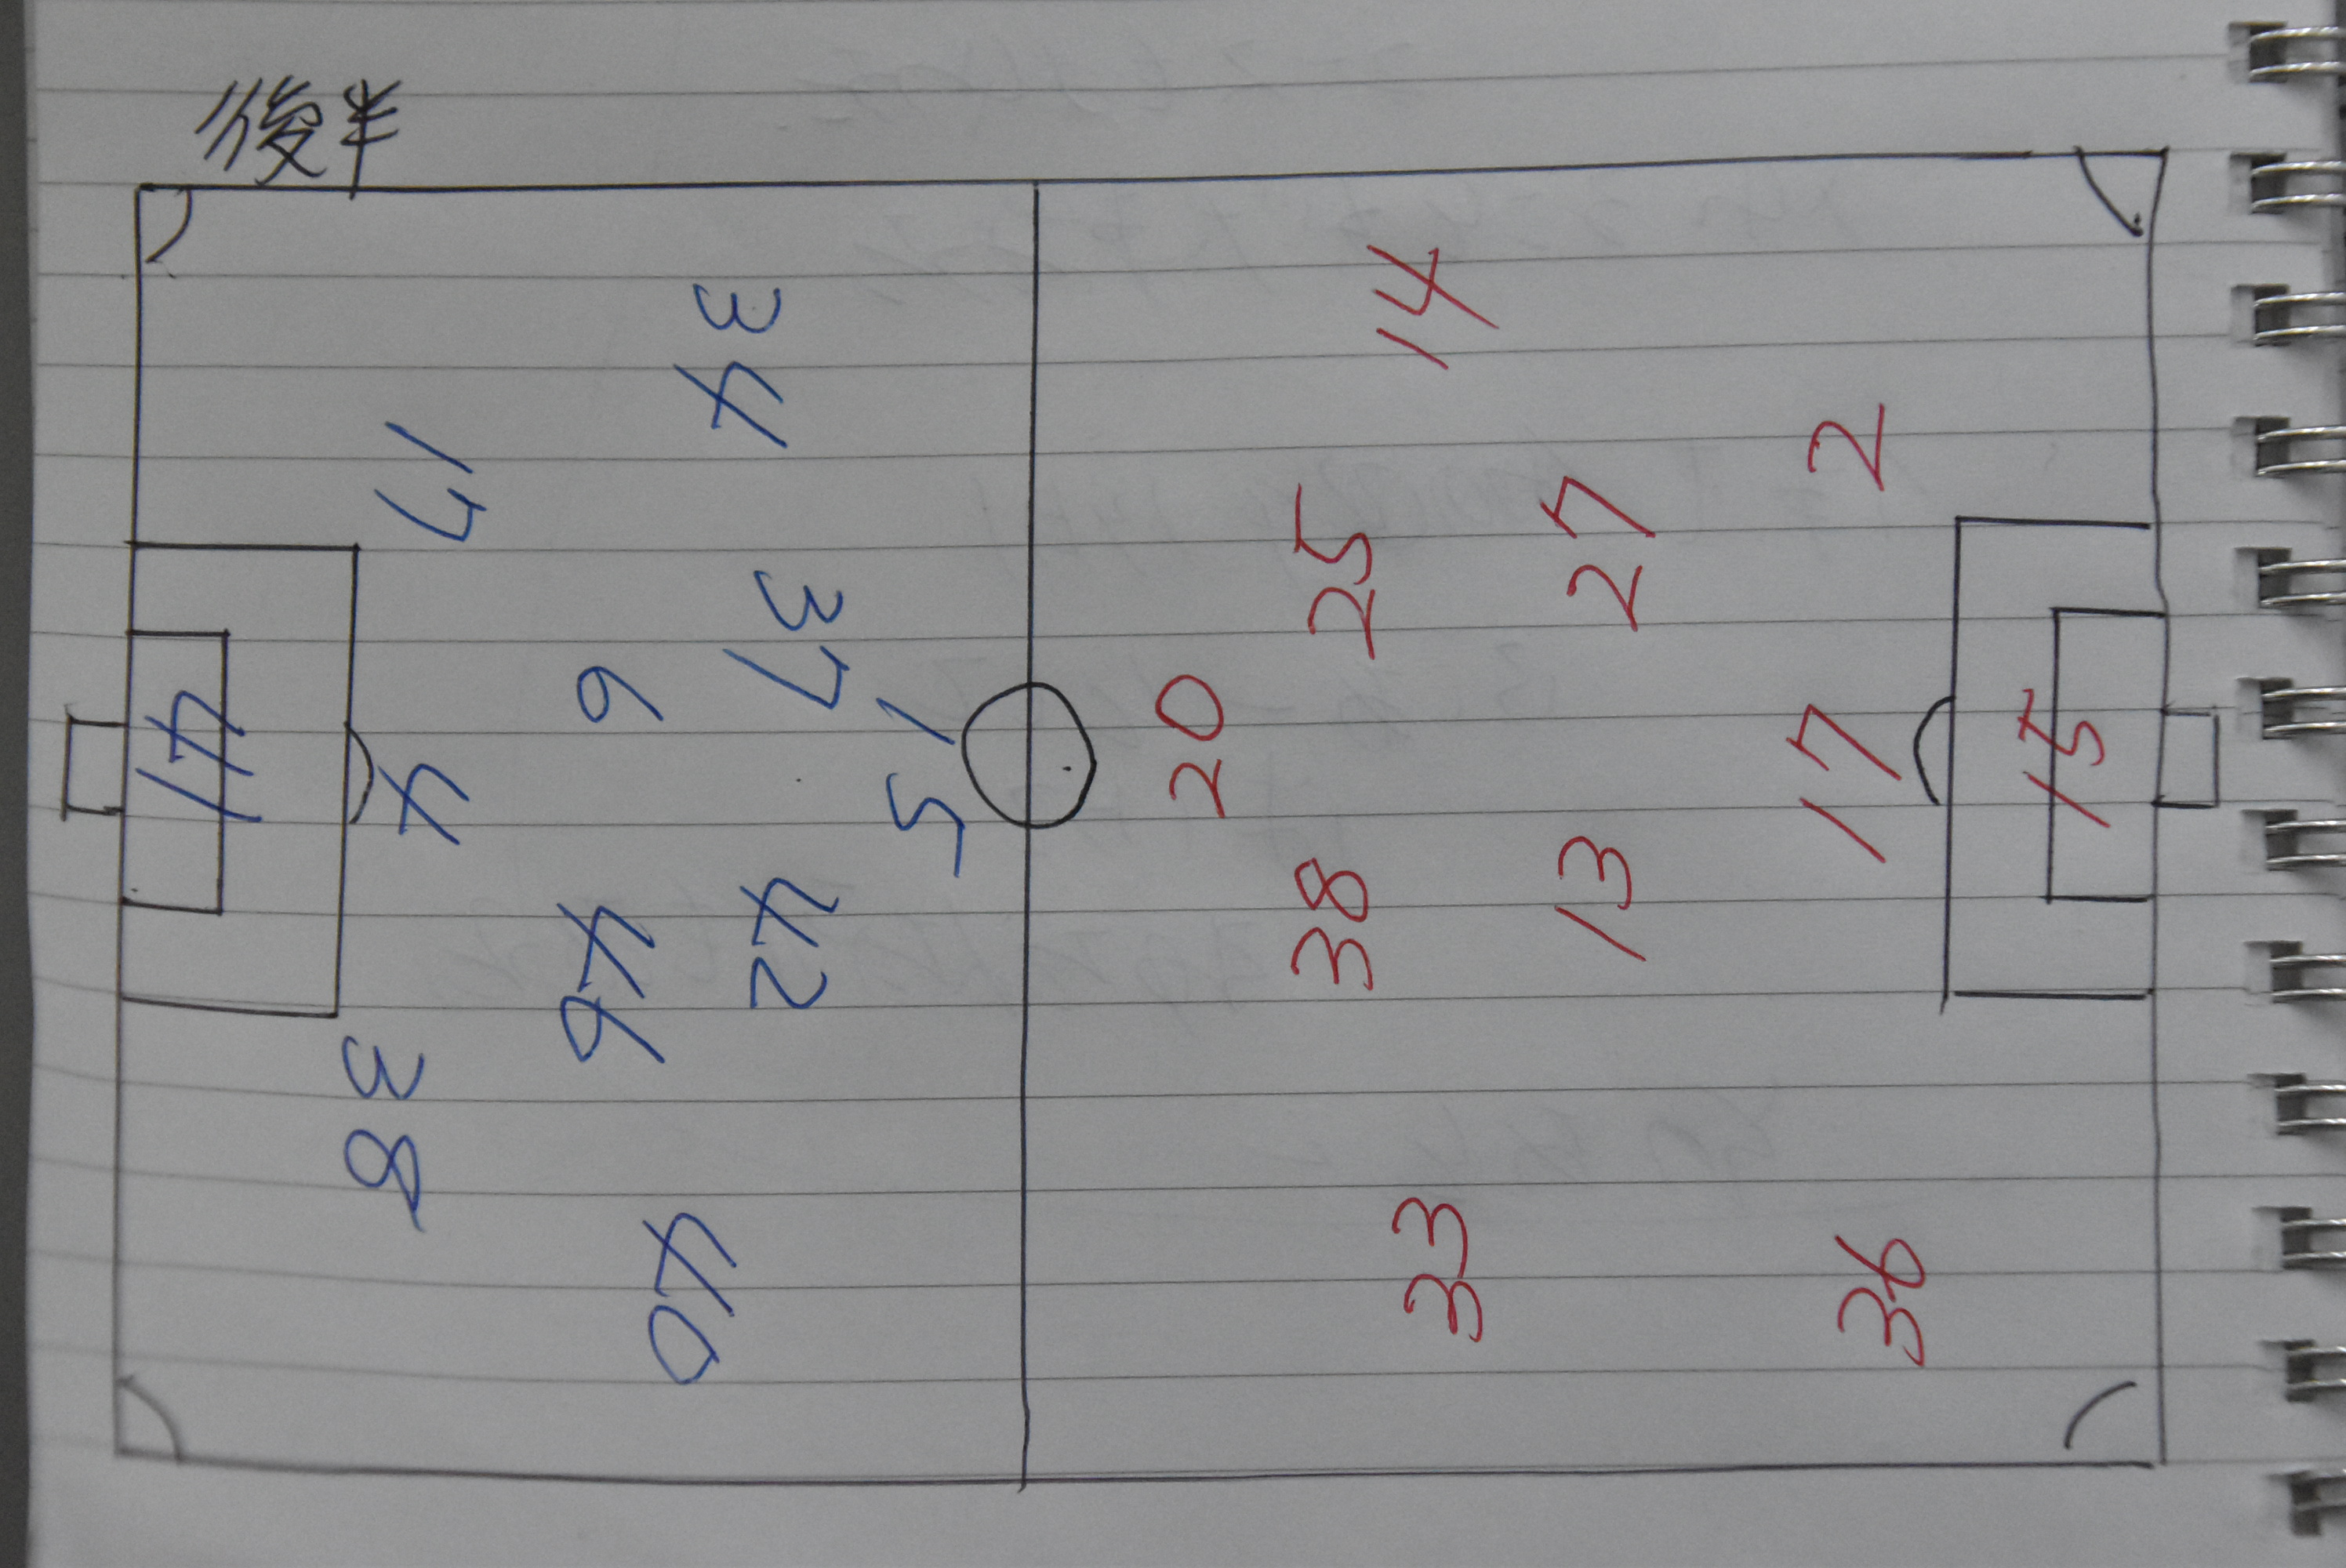 後半
34
17
37
6
15
41
4
42
46
38
40
14
2
27
25
20
17
15
13
38
33
36